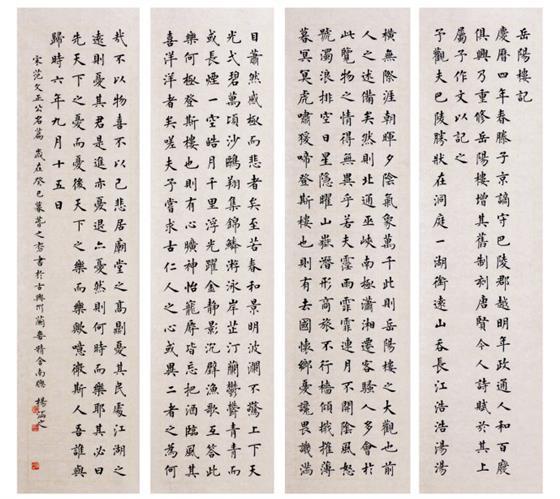 岳陽樓記
慶曆四年春滕子京謫守巴陵郡越明年政通人和百廢
俱興乃重修岳陽樓增其舊制刻唐賢今人詩賦於其上
屬予作文以記之
予觀夫巴陵勝狀在洞庭一湖銜遠山吞長江浩浩湯湯
橫無際涯朝暉夕陰氣象萬千此則岳陽樓之大觀也前
人之述備矣然則北通巫峽南極瀟湘遷客騷人多會於
此覽物之情得無異乎若夫霪雨霏霏連月不開陰風怒
號濁浪排空日星隱曜山嶽潛形商旅不行檣傾楫摧薄
暮冥冥虎嘯猨啼登斯樓也則有去國懷鄉憂讒畏譏滿
目蕭然感極而悲者矣至若春和景明波瀾不驚上下天
光弌碧萬頃沙鷗翔集錦鱗游泳岸芷汀蘭鬱鬱青青而
或長煙一空皓月千里浮光躍金靜影沉璧漁歌互答此
樂何極登斯樓也則有心曠神怡寵辱皆忘把酒臨風其
喜洋洋者矣嗟夫予嘗求古仁人之心或異二者之為何
哉不以物喜不以己悲居廟堂之高則憂其民處江湖之
遠則憂其君是進亦憂退亦憂然則何時而樂耶其必曰
先天下之憂而憂後天下之樂而樂歟噫微斯人吾誰與
歸時六年九月十五日
宋范文正公名篇 歲在癸巳暮之書於古興州蘭精舍南牕 楊